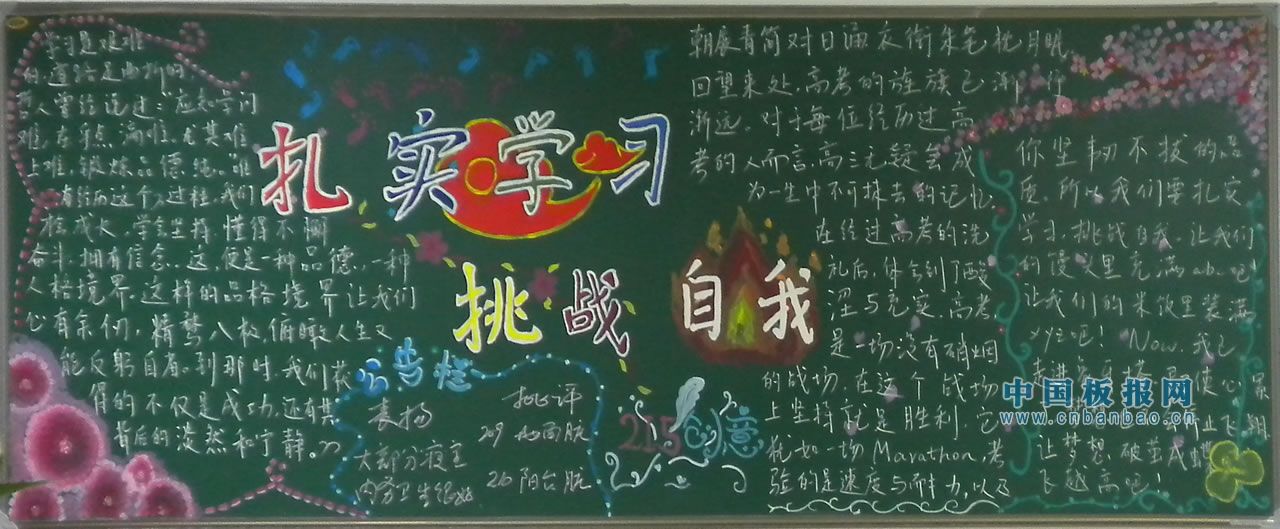 扎实学习
挑战自我
学习是艰难
的,道路是曲折的
人曾经说过:应知学问
难,在乎点滴难,尤其难
上难,锻炼品德难。唯
有经历这个过程,我们
在成长,学会坚持,懂得不懈
奋斗,拥有信念。这,便是一种品德,一种
人格境界。这样的品格境界让我们
心有余仞,精骛八极,俯瞰人生又
能反躬自省。到那时,我们获
得的不仅是成功,还有其
背后的淡然和宁静。
公告栏
表扬
大部分寝室
内务卫生很好
批评
219 地面脏
210 阳台脏
215创意
朝展青简对日
朱笔 枕月眠
回望来处,高考的旌旗已渐行
渐远 对于每位经历过高
考的人而言,高三无疑会成
为一生中不可抹去的记忆
在经过高考的洗
礼后,体会到了酸
涩与充实,高考
是一场没有硝烟
的战场,在这个战场
上坚持就是胜利,它
犹如一场Marathon,考
验的是速度与耐力,以及
你坚韧不拔的品
质,所以我们要扎实
学习,挑战自我,让我们
的馒头里充满abc吧!
让我们的米饭里装满
xyz吧! Now,我已
让梦想,破茧成蝶
飞越高吧!
中国板报网
www.cnbanbao.cn